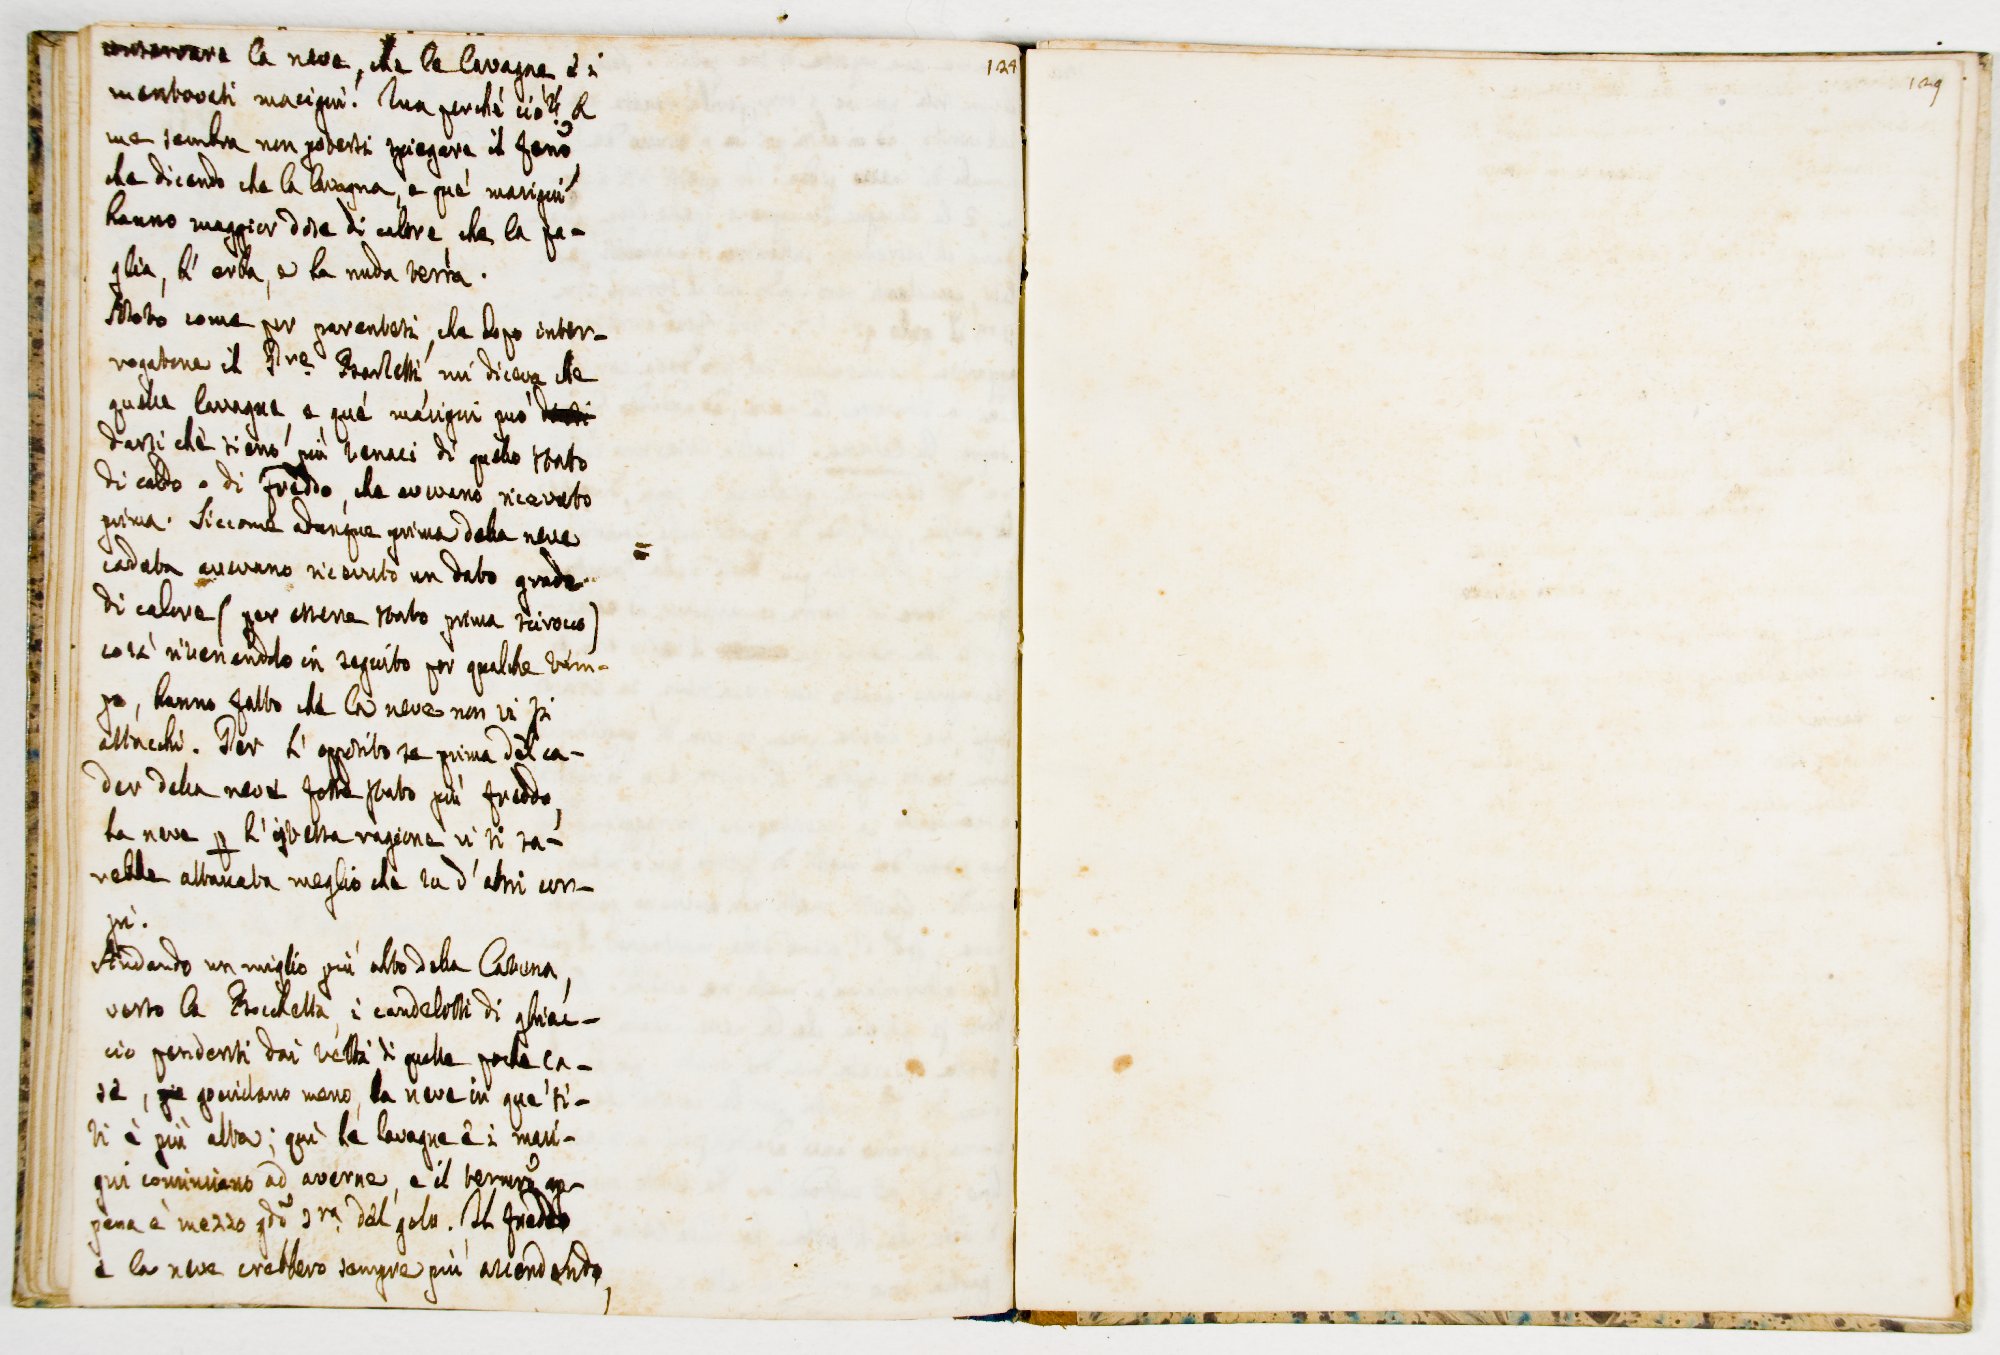 conservare la neve, che le lavagne e i
mentovati macigni. Ma perchè ciò? A
me sembra non potersi spiegare il feno
che dicendo che la lavagna, e que' macigni
hanno maggior dose di calore che la pa-
glia, l' erba, e la nuda terra.
Noto come per parentesi, che dopo inter-
rogatone il Pre Barletti mi diceva che
quelle lavagne, e que' macigni può
darsi che sieno più tenaci di quello stato
di caldo o di freddo, che avevano ricevuto
prima. Siccome adunque prima della neve
caduta avevano ricevuto un dato grado
di calore (per essere stato prima scirocco)
così ritenendolo in seguito per qualche tem-
po, hanno fatto che la neve non vi si
attacchi. Per l' opposito se prima del ca-
der della neve fosse stato più freddo,
la neve p l' istessa ragione vi si sa-
rebbe attaccata meglio che su d' altri cor-
pi.
Andando un miglio più alto della Cabona,
verso la Bocchetta, i candelotti di ghiac-
cio pendenti dai tetti di quelle poche ca-
se, gocciolano meno, la neve in que' si-
ti è più alta; quì le lavagne e i maci-
gni cominciano ad averne, e il termro ap-
pena è mezzo gdo sra del gelo. Il freddo
e la neve crebbero sempre più ascendendo,
=
128
129